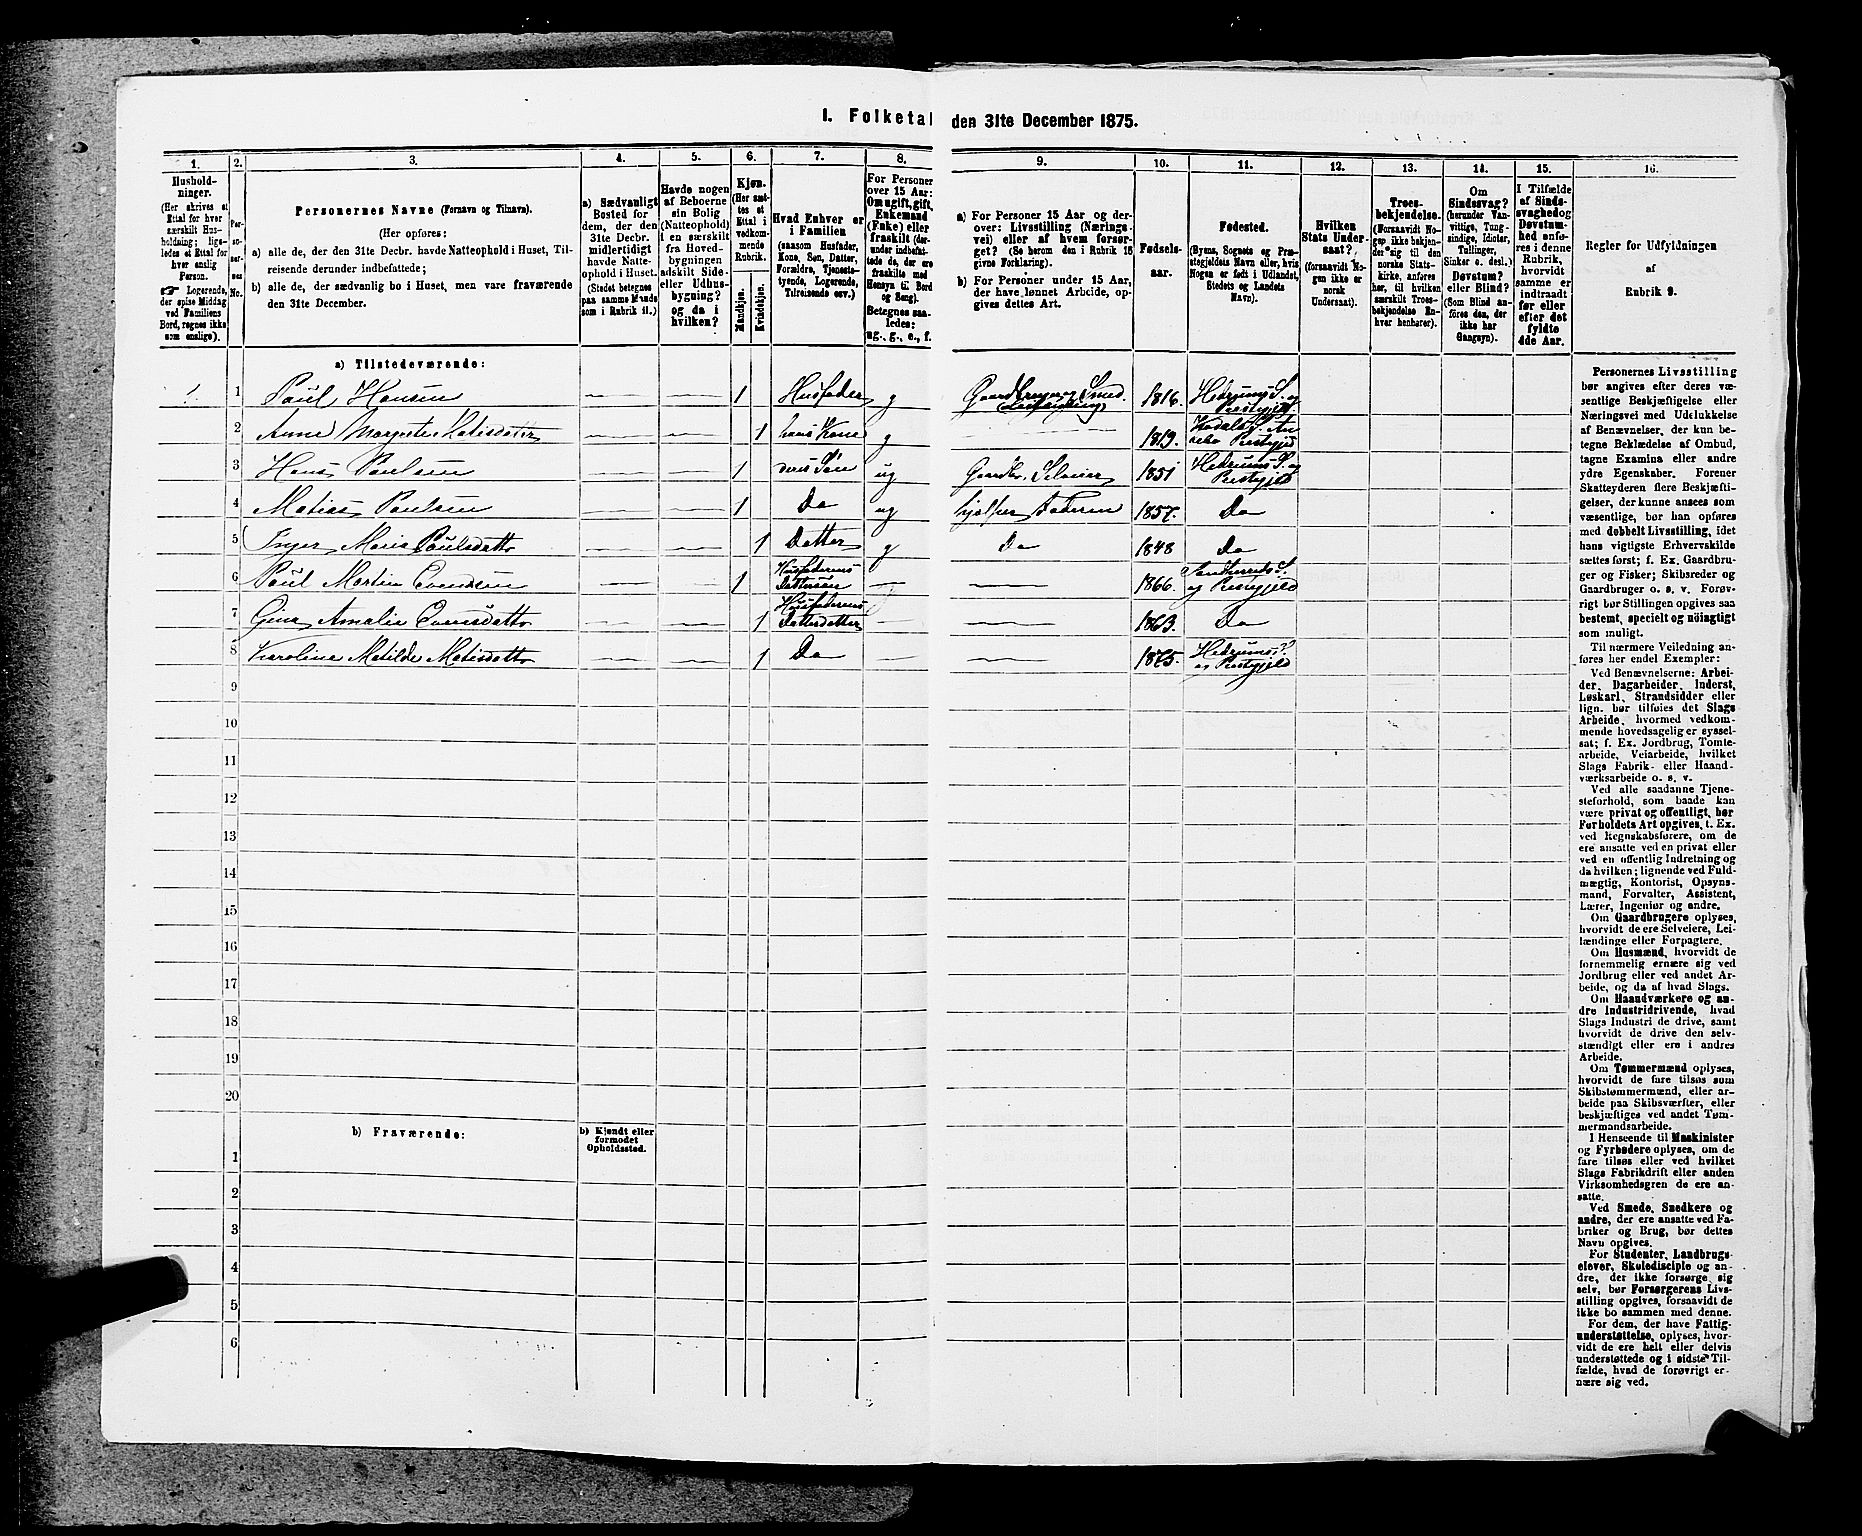 1. Folketal den 31te December 1875.
1. 2. 3. 4. 5. 6. 7. 8. 9. 10. 11. 12. 13. 14. 15. 16.
Hushold-
ninger.
(Her skrives et
Ettal for hver
særskilt Hus-
holdning; lige-
ledes et Ettal for
hver enslig
Person.
☞ Logerende,
der spise Middag
ved Familiens
Bord, regnes ikke
som enslige).
Per-
so-
ner-
nes
No.
Personernes Navne (Fornavn og Tilnavn).
(Her opføres:
a) alle de, der den 31te Decbr. havde Natteophold i Huset, Til-
reisende derunder indbefattede;
b) alle de, der sædvanlig bo i Huset, men vare fraværende
den 31te December.
a) Sædvanligt
Bosted for
dem, der den
31te Decbr.
midlertidigt
havde Natte-
ophold i Huset.
(Stedet betegnes
paa samme Maade
som i Rubrik 11.)
Havde nogen
af Beboerne
sin Bolig
(Natteophold)
i en særskilt
fra Hoved-
bygningen
adskilt Side-
eller Udhus-
bygning?
og da i
hvilken?
Kjøn.
(Her sæt-
tes et
Ettal i
vedkom-
mende
Rubrik.
Mandkjøn.
Kvindekjøn.
Hvad Enhver er
i Familien
(saasom Husfader,
Kone, Søn, Datter,
Forældre, Tjeneste-
tyende, Logerende,
Tilreisende osv.)
For Personer
over 15 Aar:
Om ugift, gift,
Enkemand
(Enke) eller
fraskilt (der-
under indbefat-
tede de, der ere
fraskilte med
Hensyn til Bord
og Seng).
Betegnes saa-
ledes:
ug., g., e., f.
a) For Personer 15 Aar og der-
over: Livsstilling (Nærings-
vei) eller af hvem forsør-
get? (Se herom den i Rubrik 16
givne Forklaring).
b) For Personer under 15 Aar,
der have lønnet Arbeide, op-
gives dettes Art.
Fødsels-
aar.
Fødested.
(Byens, Sognets og Præ-
stegjeldets Navn eller, hvis
Nogen er født i Udlandet,
Stedets og Landets
Navn).
Hvilken
Stats Under-
saat?
(forsaavidt No-
gen ikke er
norsk
Undersaat).
Troes-
bekjendelse.
(Forsaavidt No-
gen ikke bekjen-
der sig til den
norske Stats-
kirke, anføres
her, til hvilken
særskilt Troes-
bekjendelse En-
hver henhører).
Om
Sindssvag?
(herunder Van-
vittige, Tung-
sindige, Idioter,
Tullinger,
Sinker o. desl.)
Døvstum?
eller Blind?
(Som Blind an-
føres den, der
ikke har
Gangsyn).
I Tilfælde
af Sinds-
svaghed og
Døvstum-
hed anfø-
res i denne
Rubrik,
hvorvidt
samme er
indtraadt
før eller
efter det
fyldte
4de Aar.
Regler for Udfyldningen
af
Rubrik 9.
a) Tilstedeværende:
1. 1 Paul Hansen 1 Husfader g Gaardbruger og Smed 1816. Hedrums S. og Prestgjeld
2 Anne Margrete Matisdatter 1 hans Kone g 1819. Prestgjed
3 Hans Paulsen 1 deres Søn ug 1851 Hedrums S. og Prestgjeld
4 Matias Paulsen 1 Do ug hjelper Faderen 1857. Do
5 Inger Maria Paulsdatter 1 Datter g Do 1848 Do
6 Paul Martin Evensen 1 Husfaderens Dattersøn 1866. Sandherreds S. og Prestgjeld
7 Gina Amalie Evensdatter 1 Husfaderens Datterdatter 1863. Do
8 Karoline Matilde Matisdatter 1 Do 1875. Hedrums S. og Prestgjeld
9
10
11
12
13
14
15
16
17
18
19
20
b) Fraværende:
b) Kjendt eller
formodet
Opholdssted.
1
2
3
4
5
6
Personernes Livsstilling
bør angives efter deres væ-
sentlige Beskjæftigelse eller
Næringsvei med Udelukkelse
af Benævnelser, der kun be-
tegne Beklædelse af Ombud,
tagne Examina eller andre
ydre Egenskaber. Forener
Skatteyderen flere Beskjæfti-
gelser, der kunne ansees som
væsentlige, bør han opføres
med dobbelt Livsstilling, idet
hans vigtigste Erhvervskilde
sættes først; f. Ex. Gaardbru-
ger og Fisker; Skibsreder og
Gaardbruger o. s. v. Forøv-
rigt bør Stillingen opgives saa
bestemt, specielt og nöiagtigt
som muligt.
Til nærmere Veiledning an-
føres her endel Exempler:
Ved Benævnelserne: Arbei-
der, Dagarbeider, Inderst,
Løskarl, Strandsidder eller
lign. bør tilføies det Slags
Arbeide, hvormed vedkom-
mende hovedsagelig er syssel-
sat; f. Ex. Jordbrug, Tomte-
arbeide, Veiarbeide, hvilket
Slags Fabrik- eller Haand-
værksarbeide o. s. v.
Ved alle saadanne Tjene-
steforhold, som baade kan
være privat og offentligt, bør
Forholdets Art opgives, t. Ex.
ved Regnskabsførere, om de
ere ansatte ved en privat eller
ved en offentlig Indretning og
da hvilken; lignende ved Fuld-
mægtig, Kontorist, Opsyns-
mand, Forvalter, Assistent,
Lærer, Ingeniør og andre.
Om Gaardbrugere oplyses,
hvorvidt de ere Selveiere, Lei-
lændinge eller Forpagtere.
Om Husmænd, hvorvidt de
fornemmelig ernære sig ved
Jordbrug eller ved andet Ar-
beide, og da af hvad Slags.
Om Haandværkere og an-
dre Industridrivende, hvad
Slags Industri de drive, samt
hvorvidt de drive den selv-
stændigt eller ere i andres
Arbeide.
Om Tømmermænd oplyses,
hvorvidt de fare tilsøs som
Skibstømmermænd, eller ar-
beide paa Skibsværfter, eller
beskjæftiges ved andet Tøm-
mermandsarbeide.
I Henseende til Maskinister
og Fyrbødere oplyses, om de
fare tilsøs eller ved hvilket
Slags Fabrikdrift eller anden
Virksomhedsgren de ere an-
satte.
Ved Smede, Snedkere og
andre, der ere ansatte ved Fa-
briker og Brug, bør dettes
Navn opgives.
For Studenter, Landbrugs-
elever, Skoledisciple og an-
dre, der ikke forsørge sig
selv, bør Forsørgerens Livs-
stilling opgives, forsaavidt de
ikke bo sammen med denne.
For dem, der have Fattig-
understøttelse, oplyses, hvor-
vidt de ere helt eller delvis
understøttede og i sidste Til-
fælde, hvad de forøvrigt er-
nære sig ved.